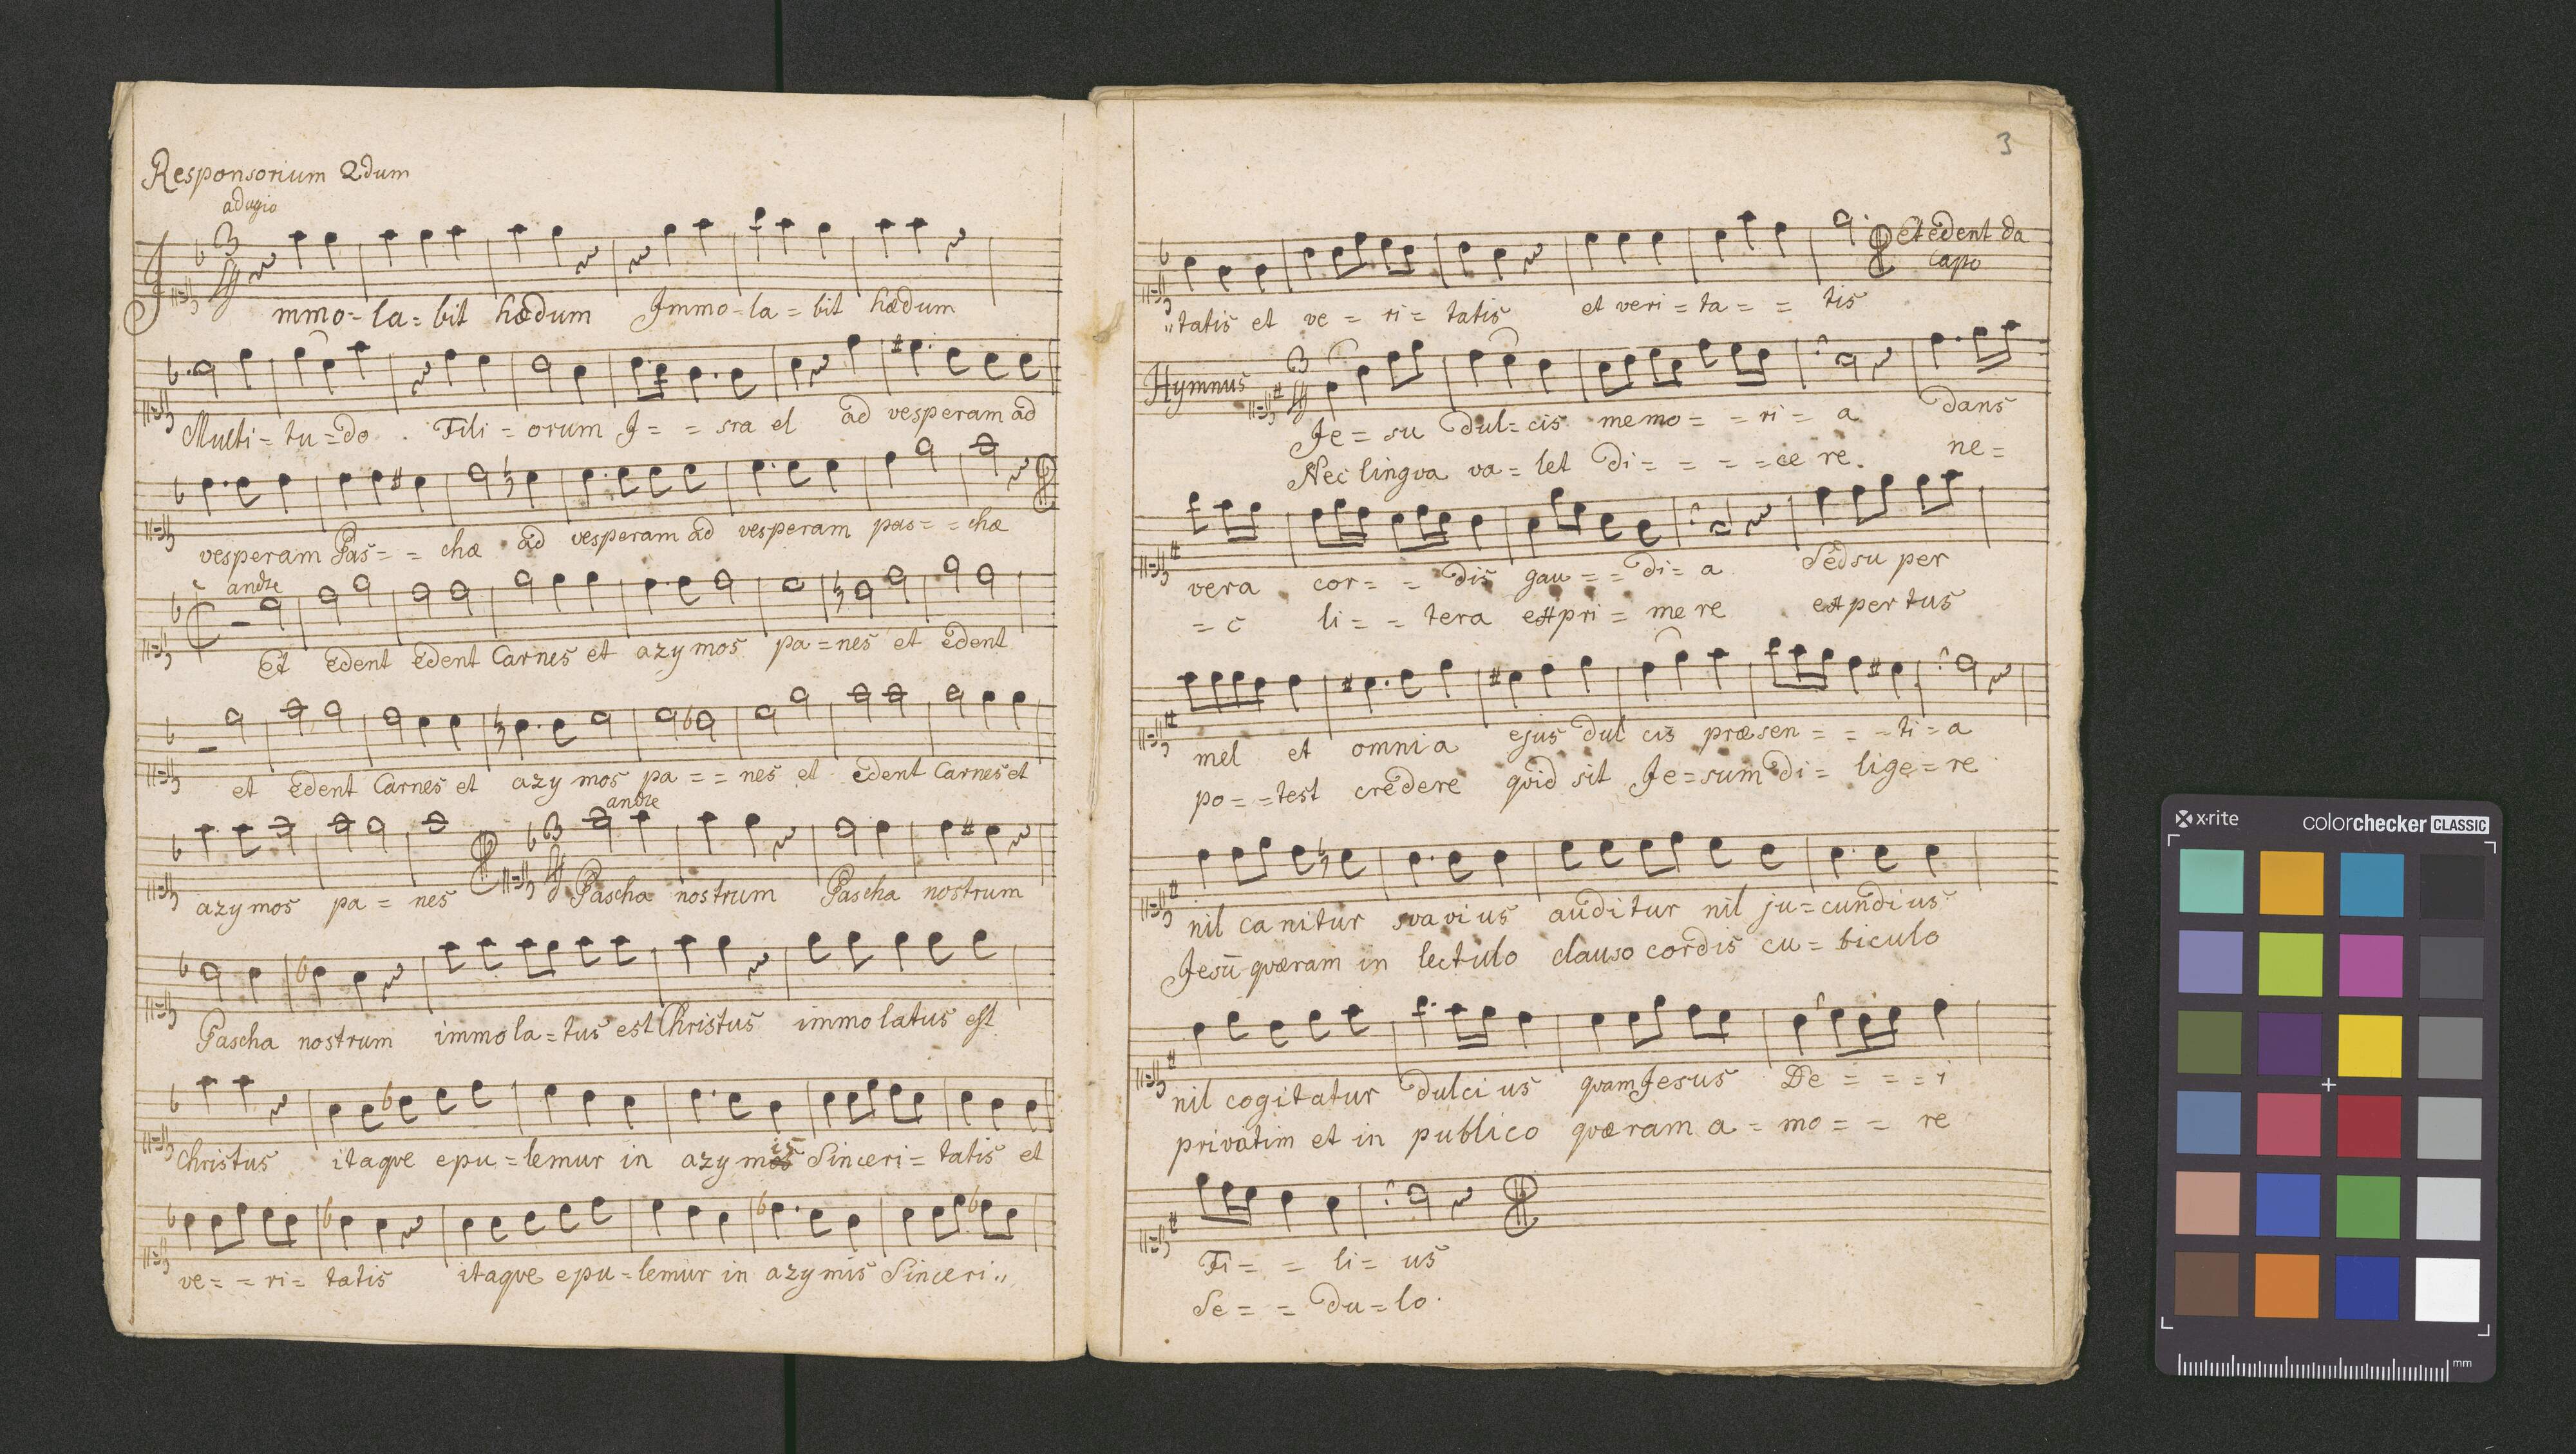 Responsorium 2dum
adagio
Immo=la=bit hædum Immo=la=bit hædum
Multi=tu=do. Fili=orum I==sra el ad vesperam ad
vesperam Pas==chæ ad vesperam ad vesperam pas==chæ
andte
Et edent edent Carnes et azymos pa=nes et edent
et edent Carnes et azy mos pa==nes et edent Carnes et
andte
azymos pa=nes Pascha nostrum Pascha nostrum
Pascha nostrum immola=tus est Christus immolatus est
Christus itaqve epu=lemur in azymis Sinceri=tatis et
ve==ri=tatis itaqve epu=lemur in azymis Sinceri„
3
Et edent da
capo
„tatis et ve=ri=tatis et veri=ta==tis
Hymnus
Je=su dul=cis memo==ri=a dans
Nec lingva va=let di====ce re. ne=
vera cor==dis gau==di=a Sed su per
=c li==tera expri=mere expertus
mel et omnia ejus dul cis præsen===ti=a
po==test credere qvid sit Je=sum di=lige=re
nil canitur svavius auditur nil ju=cundius
Jesū qværam in lectulo clauso cordis cu=biculo
nil cogitatur dulcius qvam Jesus De===i
privatim et in publico qværam a=mo==re
Fi==li=us
Se==du=lo.
x·rite colorchecker CLASSIC
mm